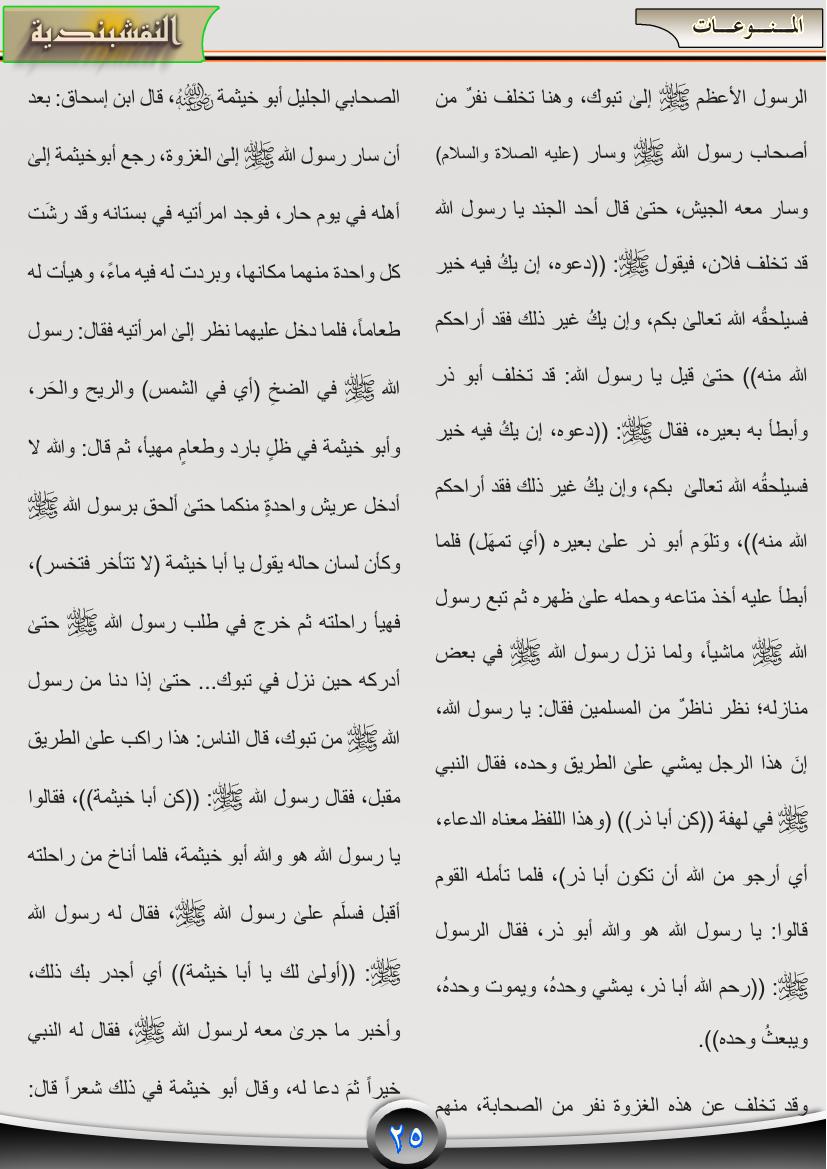 المنوعات
النقشبندية
الرسول الأعظم ﷺ إلىٰ تبوك، وهنا تخلف نفرٌ من
أصحاب رسول الله ﷺ وسار (عليه الصلاة والسلام)
وسار معه الجيش، حتىٰ قال أحد الجند يا رسول الله
قد تخلف فلان، فيقول ﷺ: ((دعوه، إن يكُ فيه خير
فسيلحقُه الله تعالىٰ بكم، وإن يكُ غير ذلك فقد أراحكم
الله منه)) حتىٰ قيل يا رسول الله: قد تخلف أبو ذر
وأبطأ به بعيره، فقال ﷺ: ((دعوه، إن يكُ فيه خير
فسيلحقُه الله تعالىٰ بكم، وإن يكُ غير ذلك فقد أراحكم
الله منه))، وتلوَم أبو ذر علىٰ بعيره (أي تمهَل) فلما
أبطأ عليه أخذ متاعه وحمله علىٰ ظهره ثم تبع رسول
الله ﷺ ماشياً، ولما نزل رسول الله ﷺ في بعض
منازله؛ نظر ناظرٌ من المسلمين فقال: يا رسول الله،
إنَ هذا الرجل يمشي علىٰ الطريق وحده، فقال النبي
ﷺ في لهفة ((كن أبا ذر)) (وهذا اللفظ معناه الدعاء،
أي أرجو من الله أن تكون أبا ذر)، فلما تأمله القوم
قالوا: يا رسول الله هو والله أبو ذر، فقال الرسول
ﷺ: ((رحم الله أبا ذر، يمشي وحدهُ، ويموت وحدهُ،
ويبعثُ وحده)).
وقد تخلف عن هذه الغزوة نفر من الصحابة، منهم
الصحابي الجليل أبو خيثمة رضي الله عنه، قال ابن إسحاق: بعد
أن سار رسول الله ﷺ إلىٰ الغزوة، رجع أبوخيثمة إلىٰ
أهله في يوم حار، فوجد امرأتيه في بستانه وقد رشَت
كل واحدة منهما مكانها، وبردت له فيه ماءً، وهيأت له
طعاماً، فلما دخل عليهما نظر إلىٰ امرأتيه فقال: رسول
الله ﷺ في الضخِ (أي في الشمس) والريح والحَر،
وأبو خيثمة في ظلٍ بارد وطعامٍ مهيأ، ثم قال: والله لا
أدخل عريش واحدةٍ منكما حتىٰ ألحق برسول الله ﷺ
وكأن لسان حاله يقول يا أبا خيثمة (لا تتأخر فتخسر)،
فهيأ راحلته ثم خرج في طلب رسول الله ﷺ حتىٰ
أدركه حين نزل في تبوك... حتىٰ إذا دنا من رسول
الله ﷺ من تبوك، قال الناس: هذا راكب علىٰ الطريق
مقبل، فقال رسول الله ﷺ: ((كن أبا خيثمة))، فقالوا
يا رسول الله هو والله أبو خيثمة، فلما أناخ من راحلته
أقبل فسلَم علىٰ رسول الله ﷺ، فقال له رسول الله
ﷺ: ((أولىٰ لك يا أبا خيثمة)) أي أجدر بك ذلك،
وأخبر ما جرىٰ معه لرسول الله ﷺ، فقال له النبي
خيراً ثمَ دعا له، وقال أبو خيثمة في ذلك شعراً قال:
٢٥